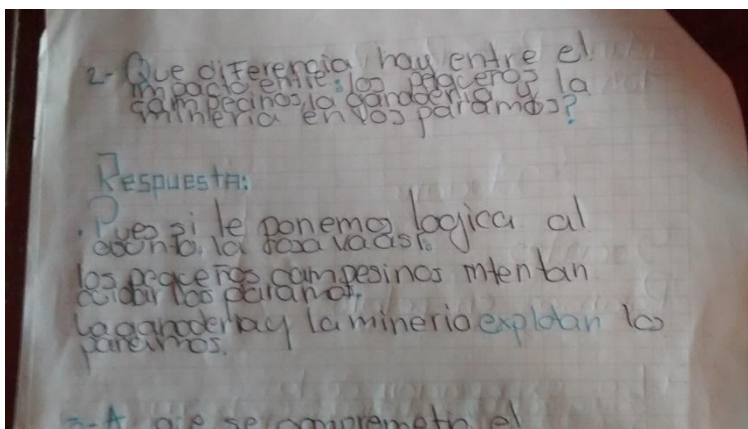 2- Que diferencia hay entre el
impacto entre: los pequeños
campecinos, la ganaderia y la
mineria en los paramos?
Respuesta:
. Pues si le ponemos logica al
asunto, la cosa va asi:
los pequeños campesinos intentan
cuidar los paramos.
La ganaderia y la mineria explotan los
paramos.
3-A que se comprometio el